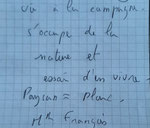 va à la campagne.
s'occupe de la
nature et
essai d'en vivre.
Paysan = planc.
Mr François